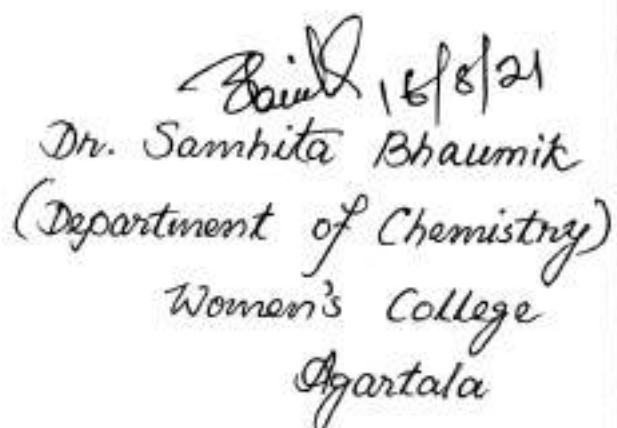 16/8/21
Dr. Samhita Bhaumik
(Department of Chemistry)
Women's College
Agartala